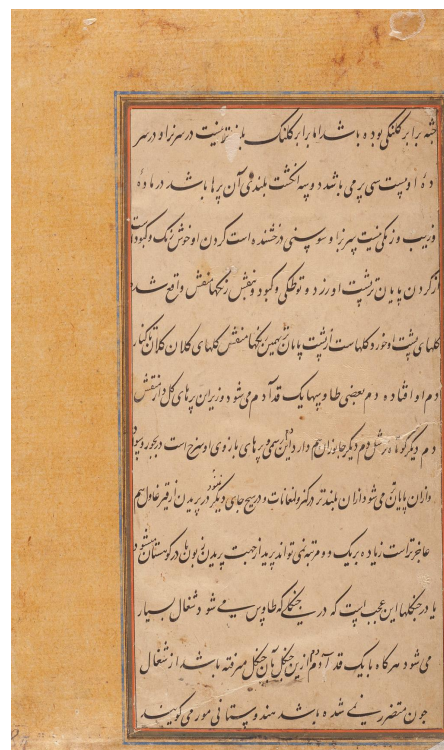 جثه برابر کلنکی بوده باشد اما برابر کلنک بلند نیست در سر نر او در سر
دهٔ او بیست سی پر می باشد دو سه انکشت بلندی آن پرها باشد در مادهٔ
و زیب و رنکی نیست سر نر او سوسنی درخشنده است کردن او خوش رنک و کبود است
از کردن پایان تر پشت او زرد و توطکی و کبود و بنفش رنکها منقش واقع شده
کلهای پشت او خورد کلهاست از پشت پایان تر بهمین رنکها منقش کلهای کلان کلان تا کنار
دم او افتاده دم بعضی طاوسها یک قد آدم می شود و زیر این پرهای کل دار منقش
دم دیکر کوتاه تر مثل دم دیکر جانوران هم دارد این دم و پرهای بازوی او سرخ است در بجور و سواد
و ازان پایان تر می شود ازان بلندتر در کنر و لمغانات و در هیچ جای دیکر نمیشود در پریدن از قیرغاول هم
عاجزتر است زیاده بر یک دو مرتبه نمی تواند پرید از جهت پریدن زبون ها در کوهستان میشود
یا در جنکلها این عجب است که در جنکلی که طاوس می شود شغال بسیار
می شود هرکاه با یک قد آدم دم ازین جنکل بآن جنکل میرفته باشد از شغال
چون متضرر نمی شده باشد هندوستانی مور می کویند